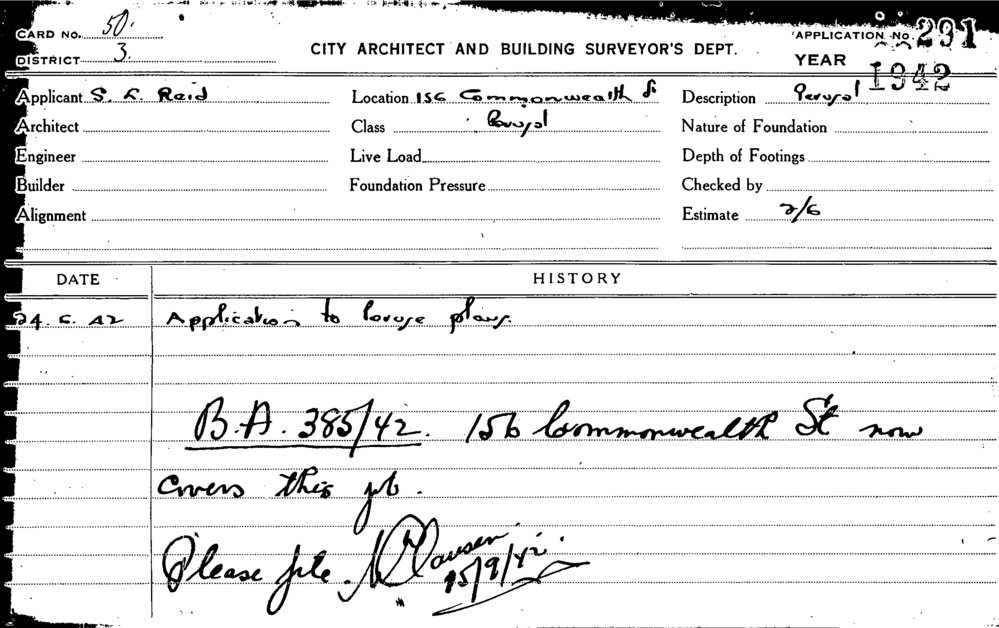 CARD No. 50.
APPLICATION No. 291
DISTRICT 3.
CITY ARCHITECT AND BUILDING SURVEYOR'S DEPT.
YEAR 1942
Applicant S. F. Reid
Location 156 Commonwealth St
Description Perusal
Architect
Class Perusal
Nature of Foundation
Engineer
Live Load
Depth of Footings
Builder
Foundation Pressure
Checked by
Alignment
Estimate 2/6
DATE
HISTORY
24. 6. 42 Application to peruse plans.
B.A. 385/42. 156 Commonwealth St now
covers this job.
Please file.
15/9/42.